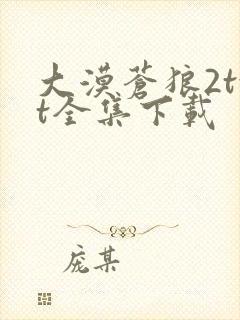 大漠苍狼2t
t全集下载
庞某